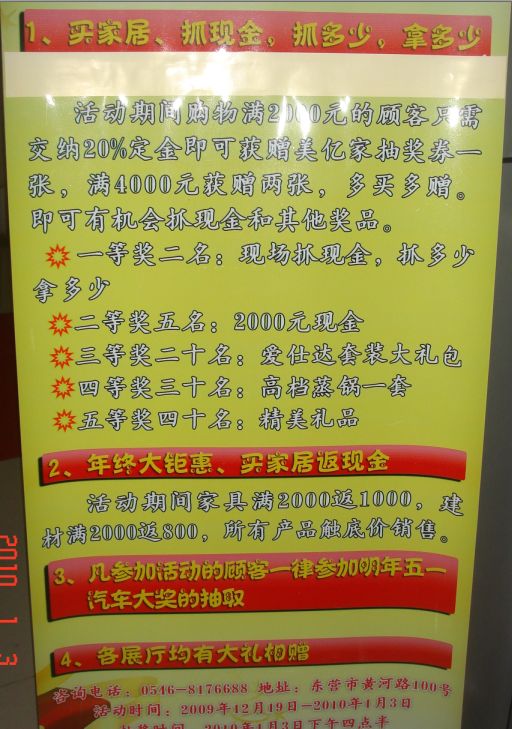 1、买家居、抓现金，抓多少，拿多少
活动期间购物满2000元的顾客只需
交纳20%定金即可获赠美亿家抽奖券一
张，满4000元获赠两张，多买多赠。
即可有机会抓现金和其他奖品。
一等奖二名：现场抓现金，抓多少
拿多少
二等奖五名：2000元现金
三等奖二十名：爱仕达套装大礼包
四等奖三十名：高档蒸锅一套
五等奖四十名：精美礼品
2、年终大钜惠、买家居返现金
活动期间家具满2000返1000，建
材满2000返800，所有产品触底价销售。
3、凡参加活动的顾客一律参加明年五一
汽车大奖的抽取
4、各展厅均有大礼相赠
咨询电话：0546-8176688 地址：东营市黄河路100号
活动时间：2009年12月19日-2010年1月3日
抽奖时间：2010年1月3日下午四点半
2010 1 3